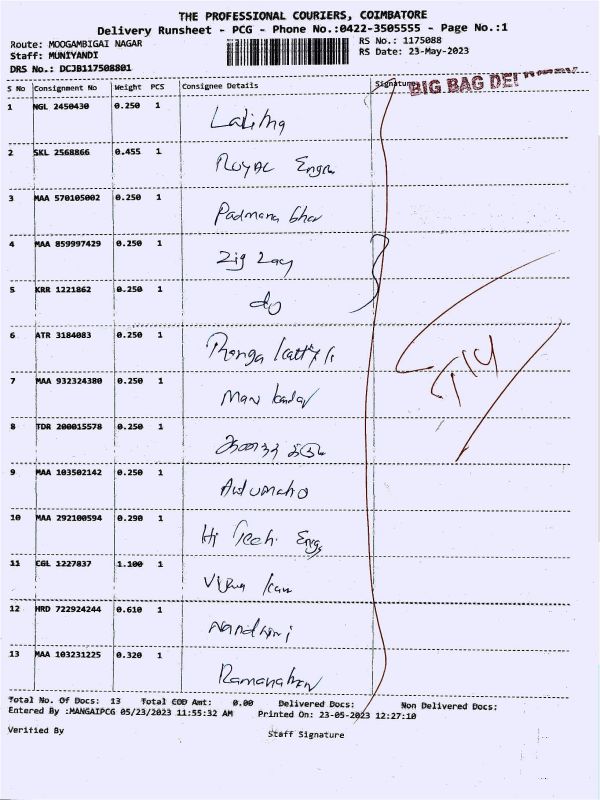 THE PROFESSIONAL COURIERS, COIMBATORE
Delivery Runsheet - PCG - Phone No.:0422-3505555 - Page No.:1
Route: MOOGAMBIGAI NAGAR RS No.: 1175088
Staff: MUNIYANDI RS Date: 23-May-2023
DRS No.: DCJB117508801
S No Consignment No Weight PCS Consignee Details Signature BIG BAG
1 NGL 2450430 0.250 1
2 SKL 2568866 0.455 1 Royal Engn
3 MAA 570105002 0.250 1 Padmana bhar
4 MAA 859997429 0.250 1 Zig Zag
5 KRR 1221862 0.250 1 do
6 ATR 3184083 0.250 1 Ranga
7 MAA 932324380 0.250 1
8 TDR 200015578 0.250 1
9 MAA 103502142 0.250 1
10 MAA 292100594 0.290 1 Hi Tech Engg
11 CGL 1227837 1.100 1
12 HRD 722924244 0.610 1 Nandhini
13 MAA 103231225 0.320 1
Total No. Of Docs: 13 Total COD Amt: 0.00 Delivered Docs: Non Delivered Docs:
Entered By :MANGAIPCG 05/23/2023 11:55:32 AM Printed On: 23-05-2023 12:27:10
Verified By Staff Signature